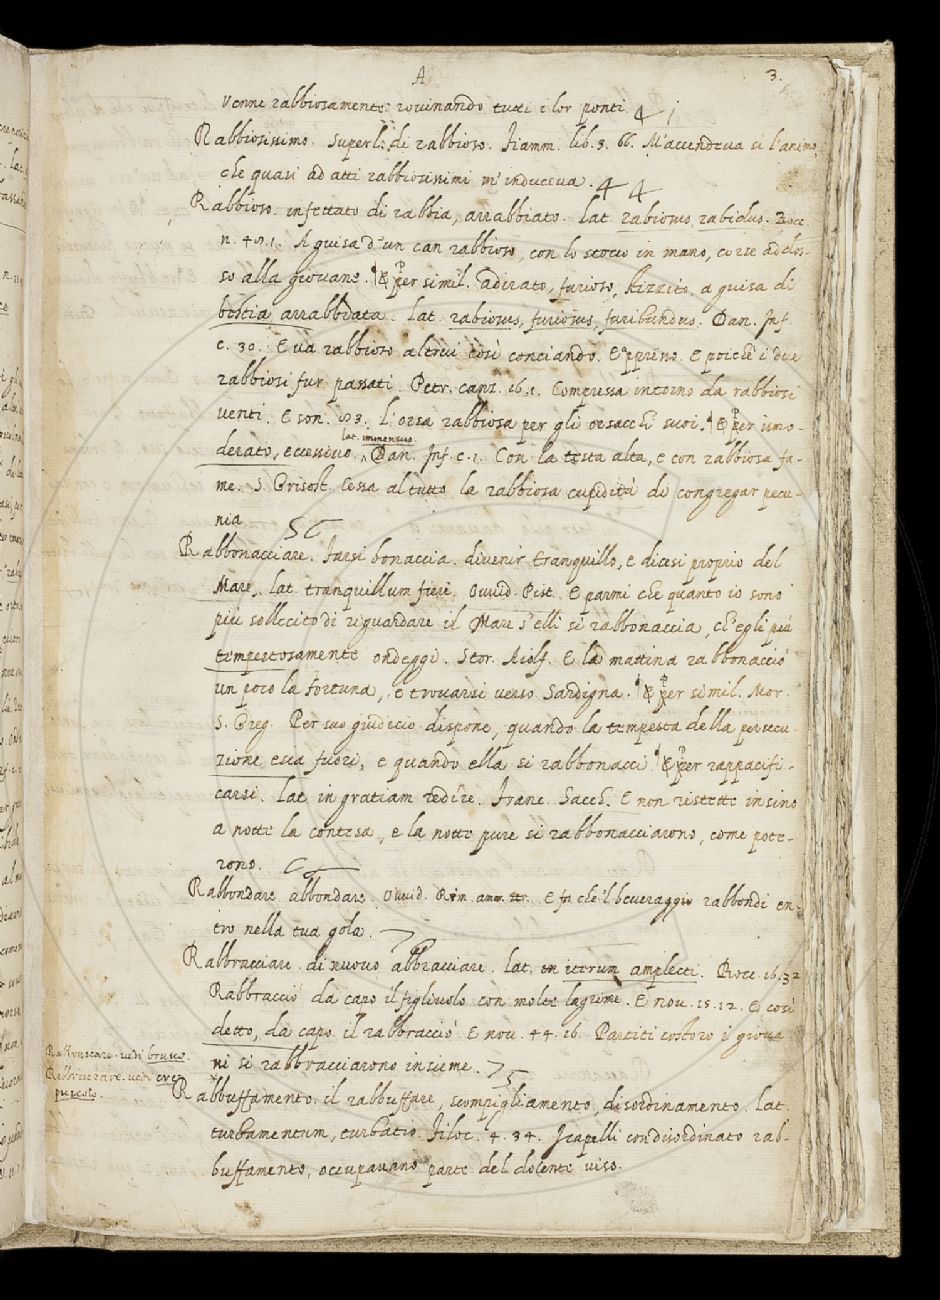 A
3.
Venne rabbiosamente rovinando tutti i lor ponti. 41
Rabbiosissimo. Superl: di rabbioso. Fiamm. lib. 3. 66. M'accendeva sì l'animo,
che quasi ad atti rabbiosissimi m'induceva. 44
Rabbioso. infettato di rabbia, arrabbiato. lat. rabiosus, rabidus. Bocc.
n. 47.1. A guisa d'un can rabbioso, con lo stocco in mano, corse addos-
so alla giovane. ¶ E per simil. adirato, furioso, stizzito a guisa di
bestia arrabbiata. lat. rabiosus, furiosus, furibundus. Dan. Inf.
c. 30. E va rabbioso altrui così conciando. E appreso. E poiche i due
rabbiosi fur passati. Petr. canz. 16.1. Compressa intorno da rabbiosi
venti. E son. L'orsa rabbiosa per gli orsacchi suoi. ¶ E per imo-
lat. immensus.
derato, eccessivo. Dan. Inf. c. 1. Con la testa alta, e con rabbiosa fa-
me. S. Grisost. Cessa al tutto la rabbiosa cupidità di congregar pecu-
nia 56
Rabbonacciare. Farsi bonaccia. divenir tranquillo, e dicesi proprio del
Mare. lat. tranquillum fieri. Ovvid. Pist. E parmi che quanto io sono
più sollecito di riguardare il Mare s'elli si rabbonaccia, ch'egli più
tempestosamente ondeggi. Stor. Aiolf. E la mattina rabbonacciò
un poco la fortuna, e trovarsi verso Sardegna. ¶ E per simil. Mor.
S. Greg. Per suo giudicio dispone, quando la tempesta della persecu-
zione esca fuori, e quando ella si rabbonacci ¶ E per rappacifi-
carsi. lat. in gratiam redire. Franc. Sacch. E non ristette insino
a notte la contesa, e la notte pure si rabbonacciarono, come pote-
rono. 6
Rabbondare. abbondare. Ovvid. Rim. am. E fa che'l beveraggio rabbondi en-
tro nella tua gola. 7
Rabbracciare. di nuovo abbracciare. lat. iterum amplecti. Bocc. 16.32
Rabbracciò da capo il figliuolo con molte lagrime. E nov. 15.12. E così
detto, da capo il rabbracciò E nov. 44.16. Partiti costoro i giova
ni si rabbracciarono insieme. 75
Rabbruscare. vedi brusco.
Rabbruzzare. vedi cre
puscolo.
Rabbuffamento. il rabbuffare, scompigliamento, disordinamento. lat.
turbamentum, turbatio. Filoc. 4. 34. I capelli con disordinato rab-
buffamento, occupavano parte del dolente viso.